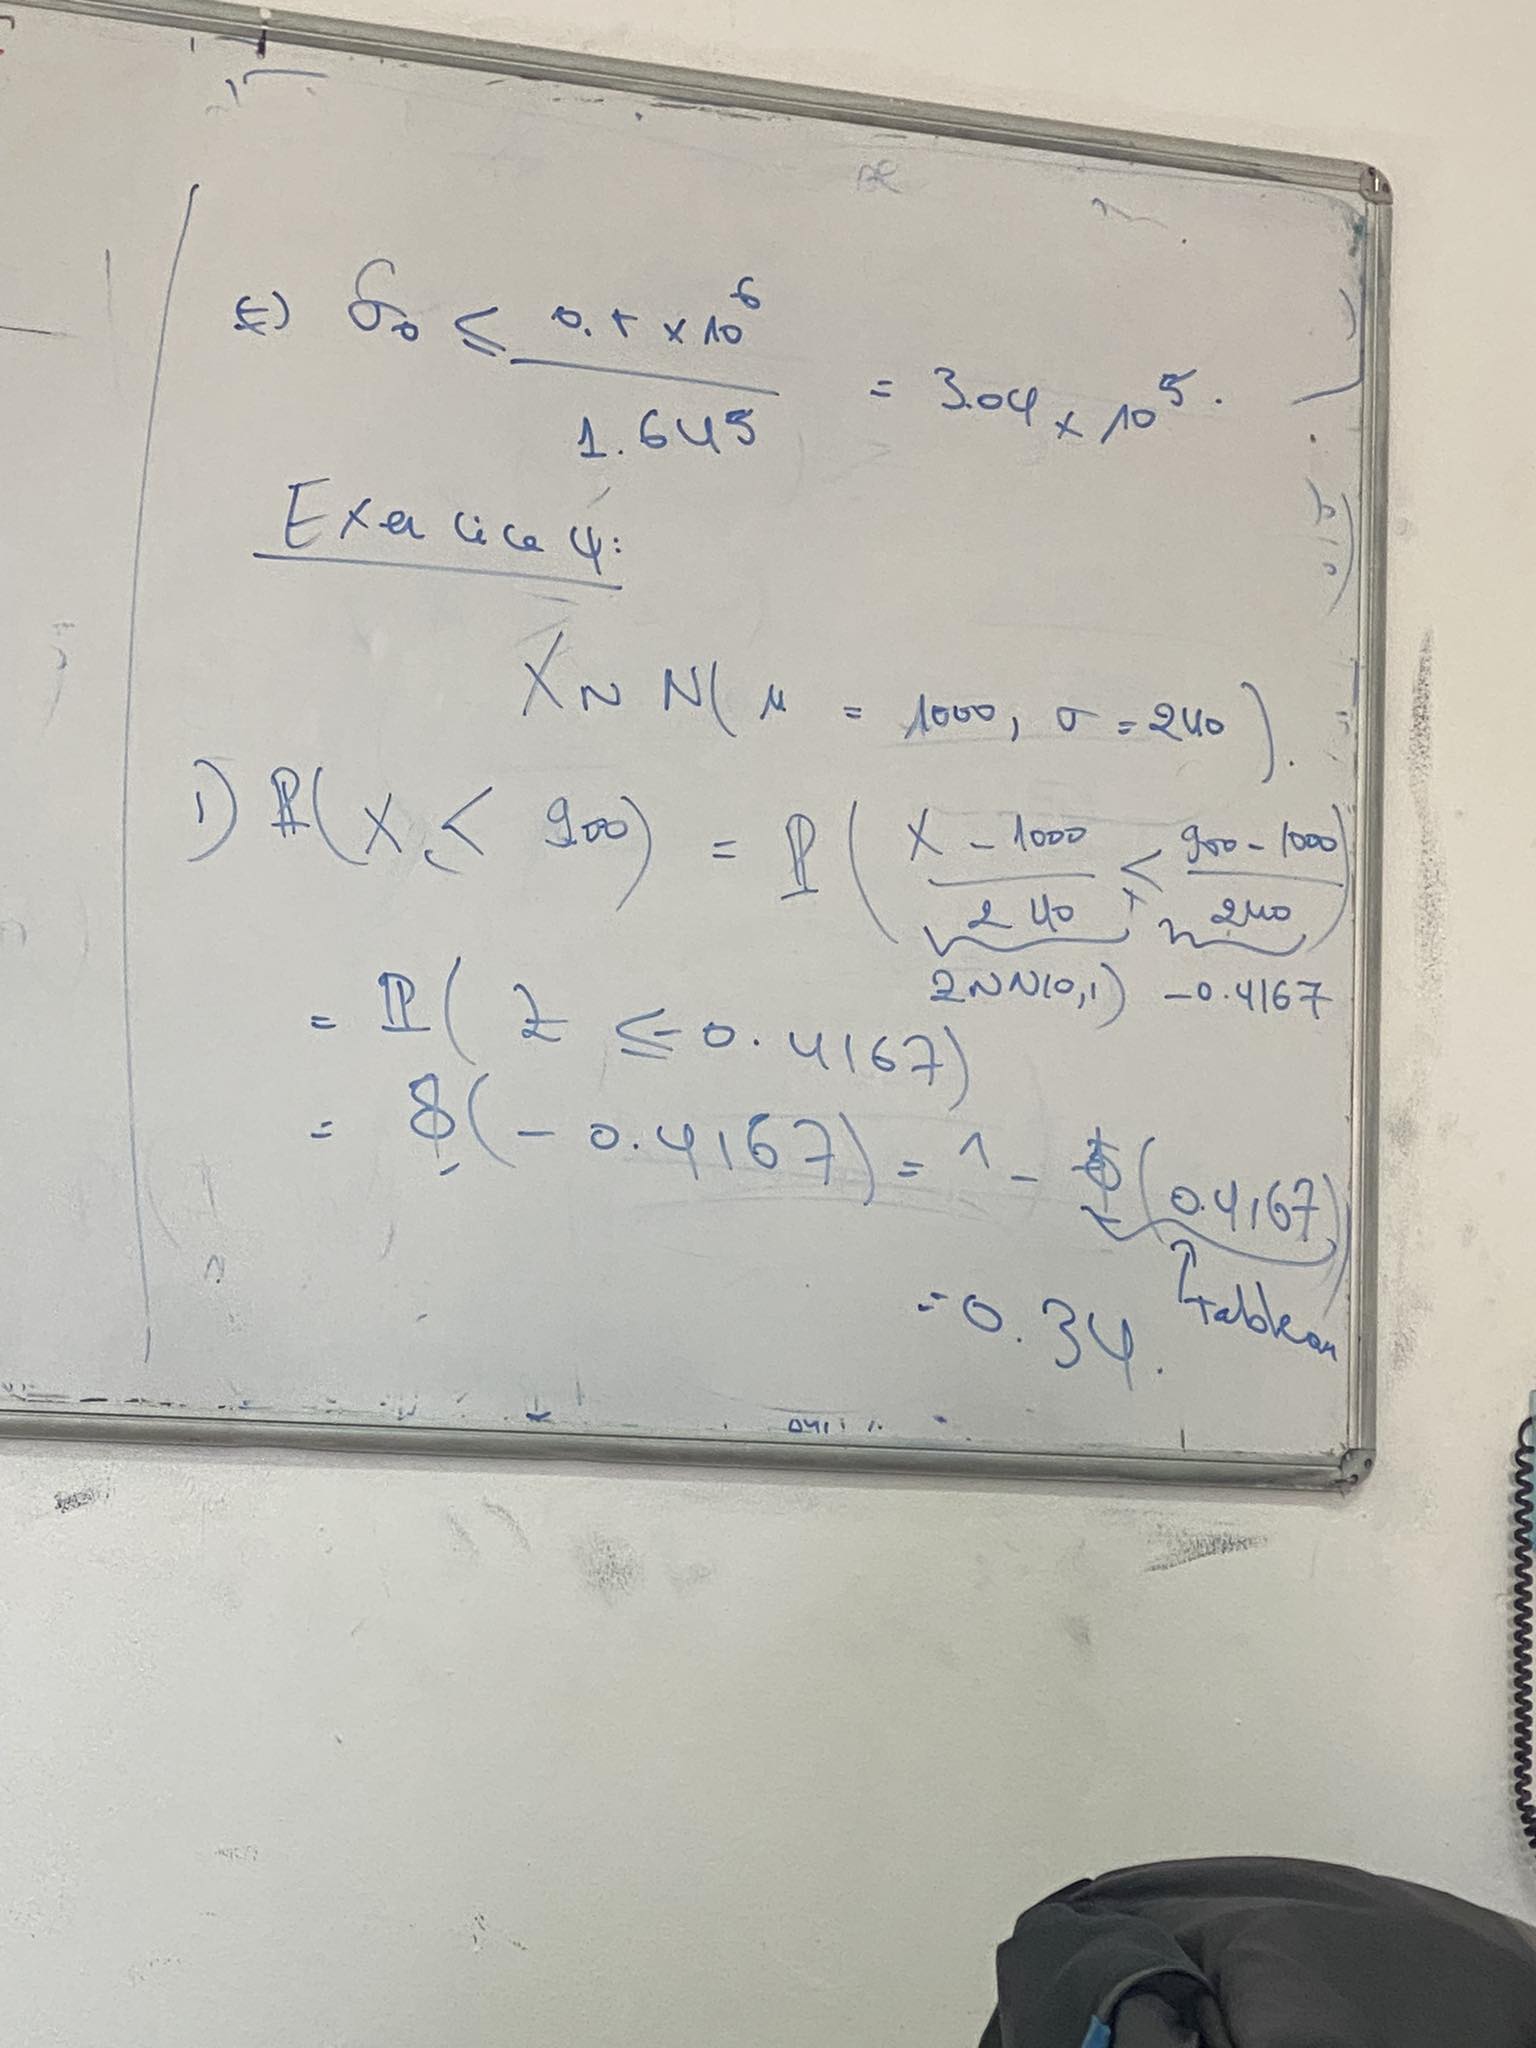 σ₀ ≤ 0.5 × 10⁶ / 1.645 = 3.04 × 10⁵.
Exercice 4:
X ~ N(μ = 1000, σ = 240).
1) ℙ(X < 900) = ℙ( (X - 1000) / 240 < (900 - 1000) / 240 )
Z ~ N(0,1) -0.4167
= ℙ( Z ≤ -0.4167)
= Φ(-0.4167) = 1 - Φ(0.4167)
tableau
= 0.34.